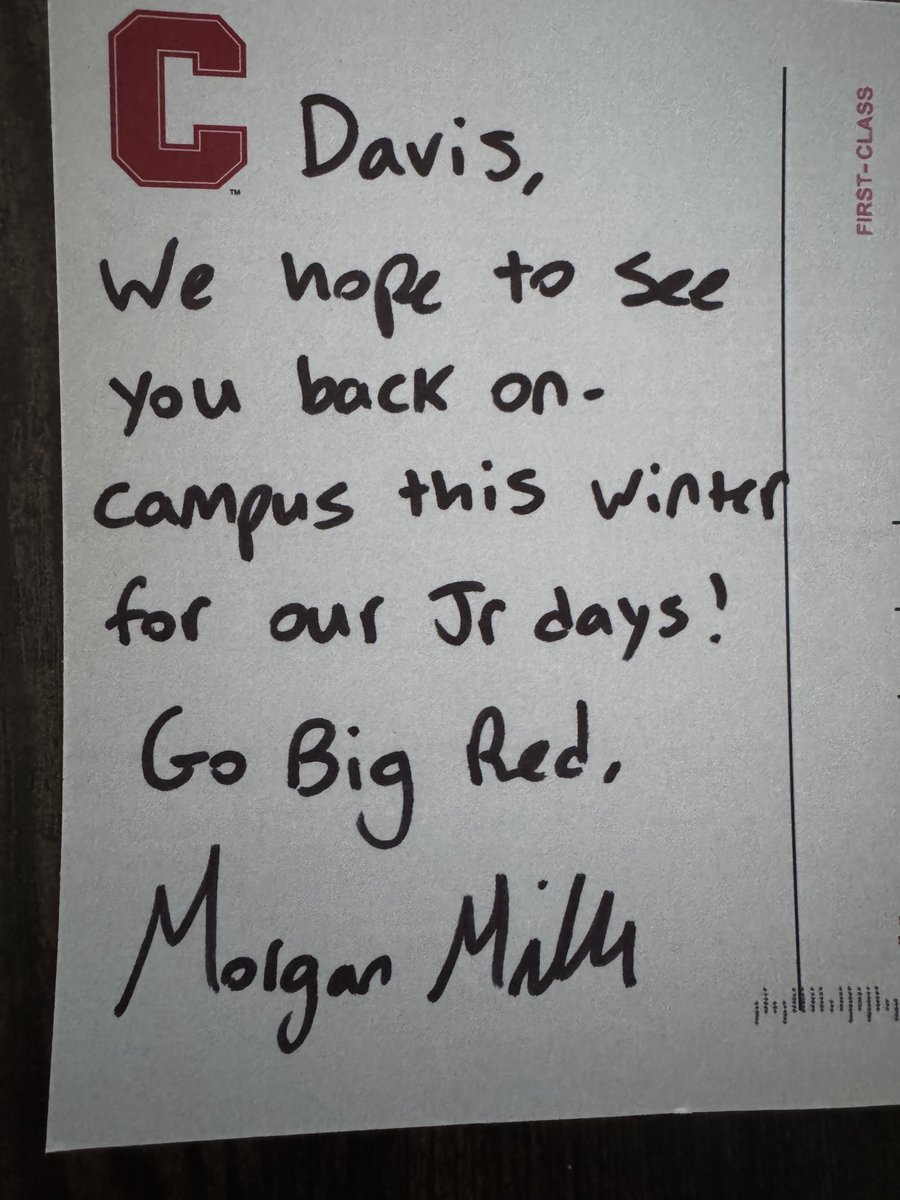 C
™
Davis,
We hope to see
you back on-
campus this winter
for our Jr days!
Go Big Red.
Morgan Mills
FIRST-CLASS